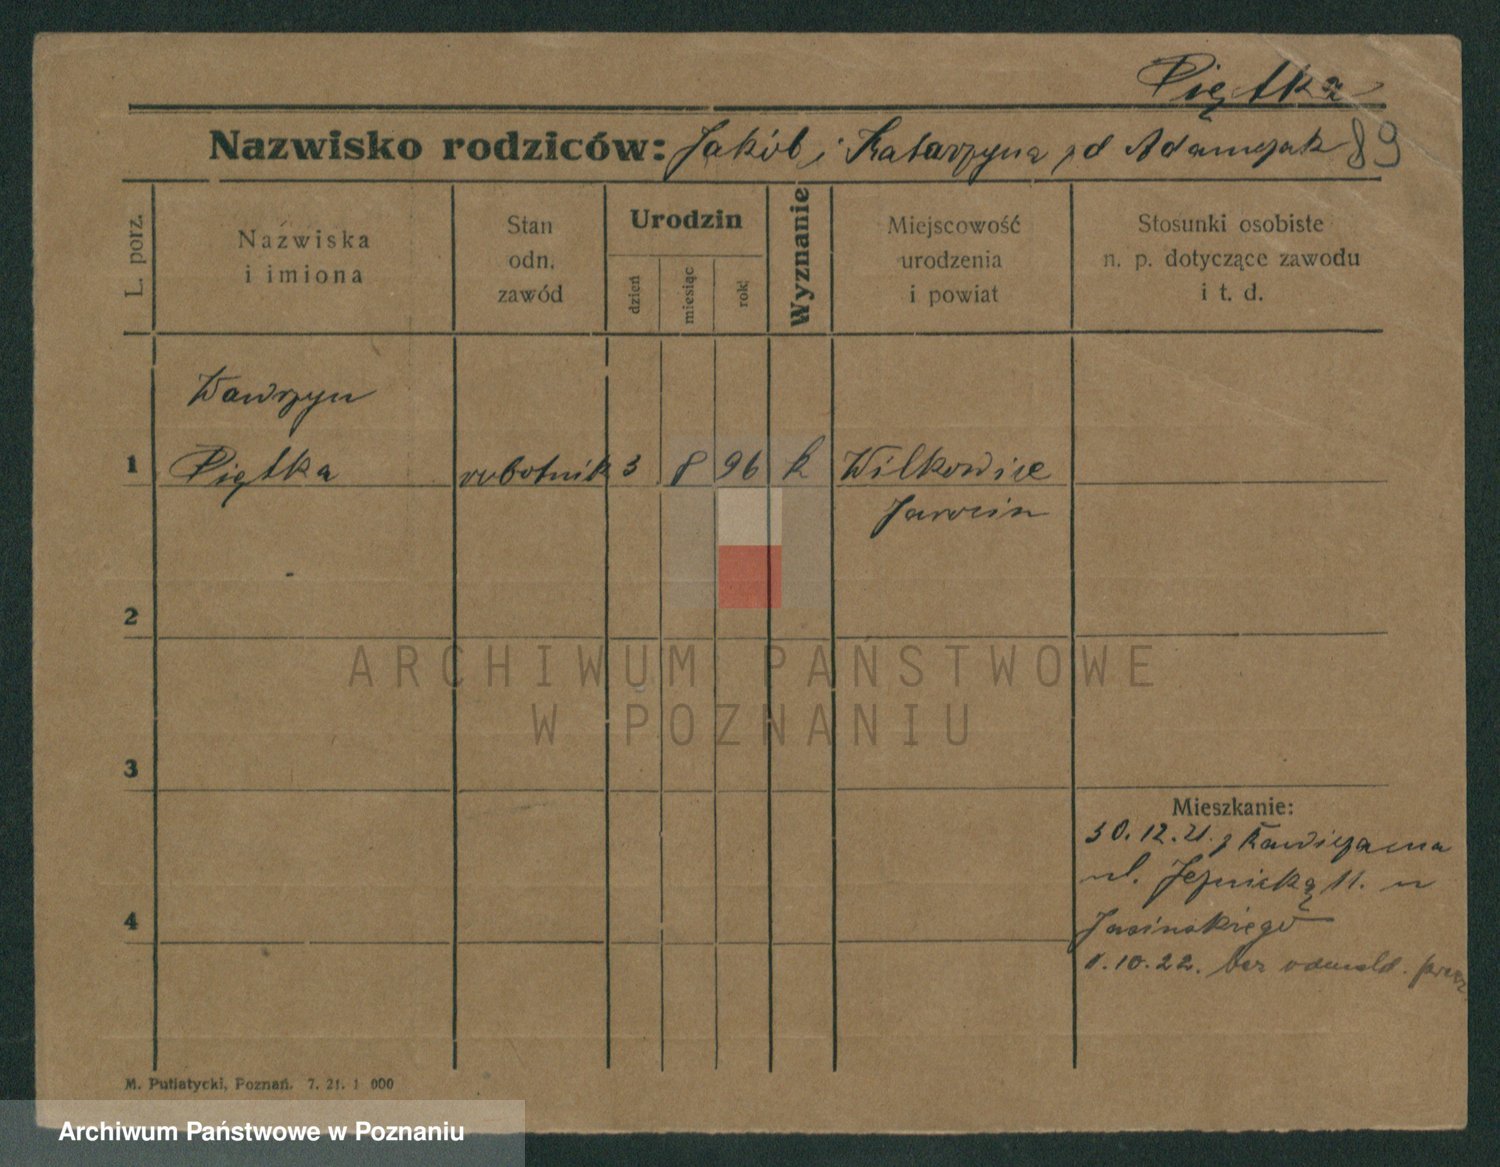 Piętka
Nazwisko rodziców: Jakób i Katarzyna zd Adamczak 89
L. porz.
Nazwiska
i imiona
Stan
odn.
zawód
Urodzin
dzień
miesiąc
rok
Wyznanie
Miejscowość
urodzenia
i powiat
Stosunki osobiste
n. p. dotyczące zawodu
i t. d.
Wawrzyn
1 Piętka robotnik 3 8 96 k Wilkowice
Jarocin
2
ARCHIWUM PAŃSTWOWE
W POZNANIU
3
Mieszkanie:
30.12.21. z
ul. 11. u
4
Jasińskiego
1.10.22. bez
M. Putiatycki, Poznań. 7. 21. 1 000
Archiwum Państwowe w Poznaniu